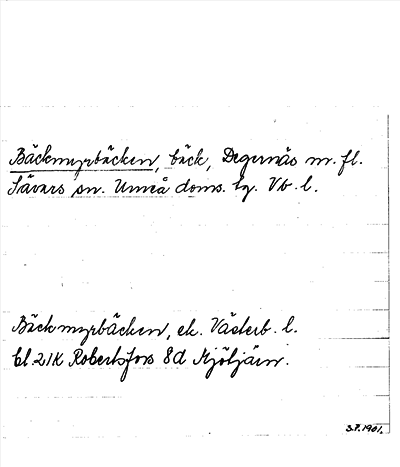 Bäckmyrbäcken, bäck, Degernäs m. fl.
Sävars sn. Umeå doms. tg. Vb. l.
Bäckmyrbäcken, ek. Västerb. l.
bl. 21K Robertsfors 8d Mjöltjärn.
S.F. 1901.